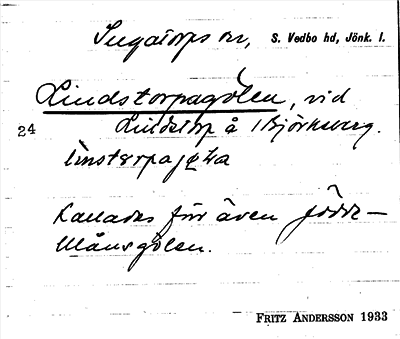 Ingatorps sn, S. Vedbo hd, Jönk. l.
Lindstorpagölen, vid
24 Lindstorp å Björkeberg.
Kallades för även
Månsgölen.
FRITZ ANDERSSON 1933